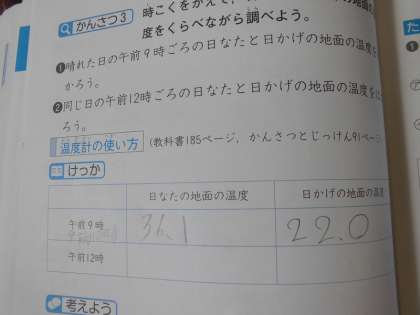 かんさつ3
時こくをかえて、
度をくらべながら調べよう。
❶晴れた日の午前9時ごろの日なたと日かげの地面の温度を
かろう。
❷同じ日の午前12時ごろの日なたと日かげの地面の温度を
ろう。
温度計の使い方 (教科書185ページ, かんさつとじっけん91ページ
けっか
日なたの地面の温度 日かげの地面の温度
午前9時 36.1 22.0
午前12時
考えよう